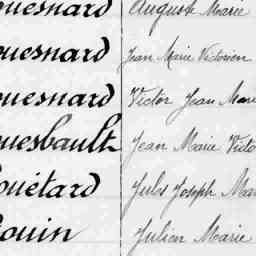 ouesnard Auguste Marie
ouesnard Jean Marie Victorien
ouesnard Victor Jean Mari
ouesbault Jean Marie Victo
ouétard Jules Joseph Mar
ouin Julien Marie